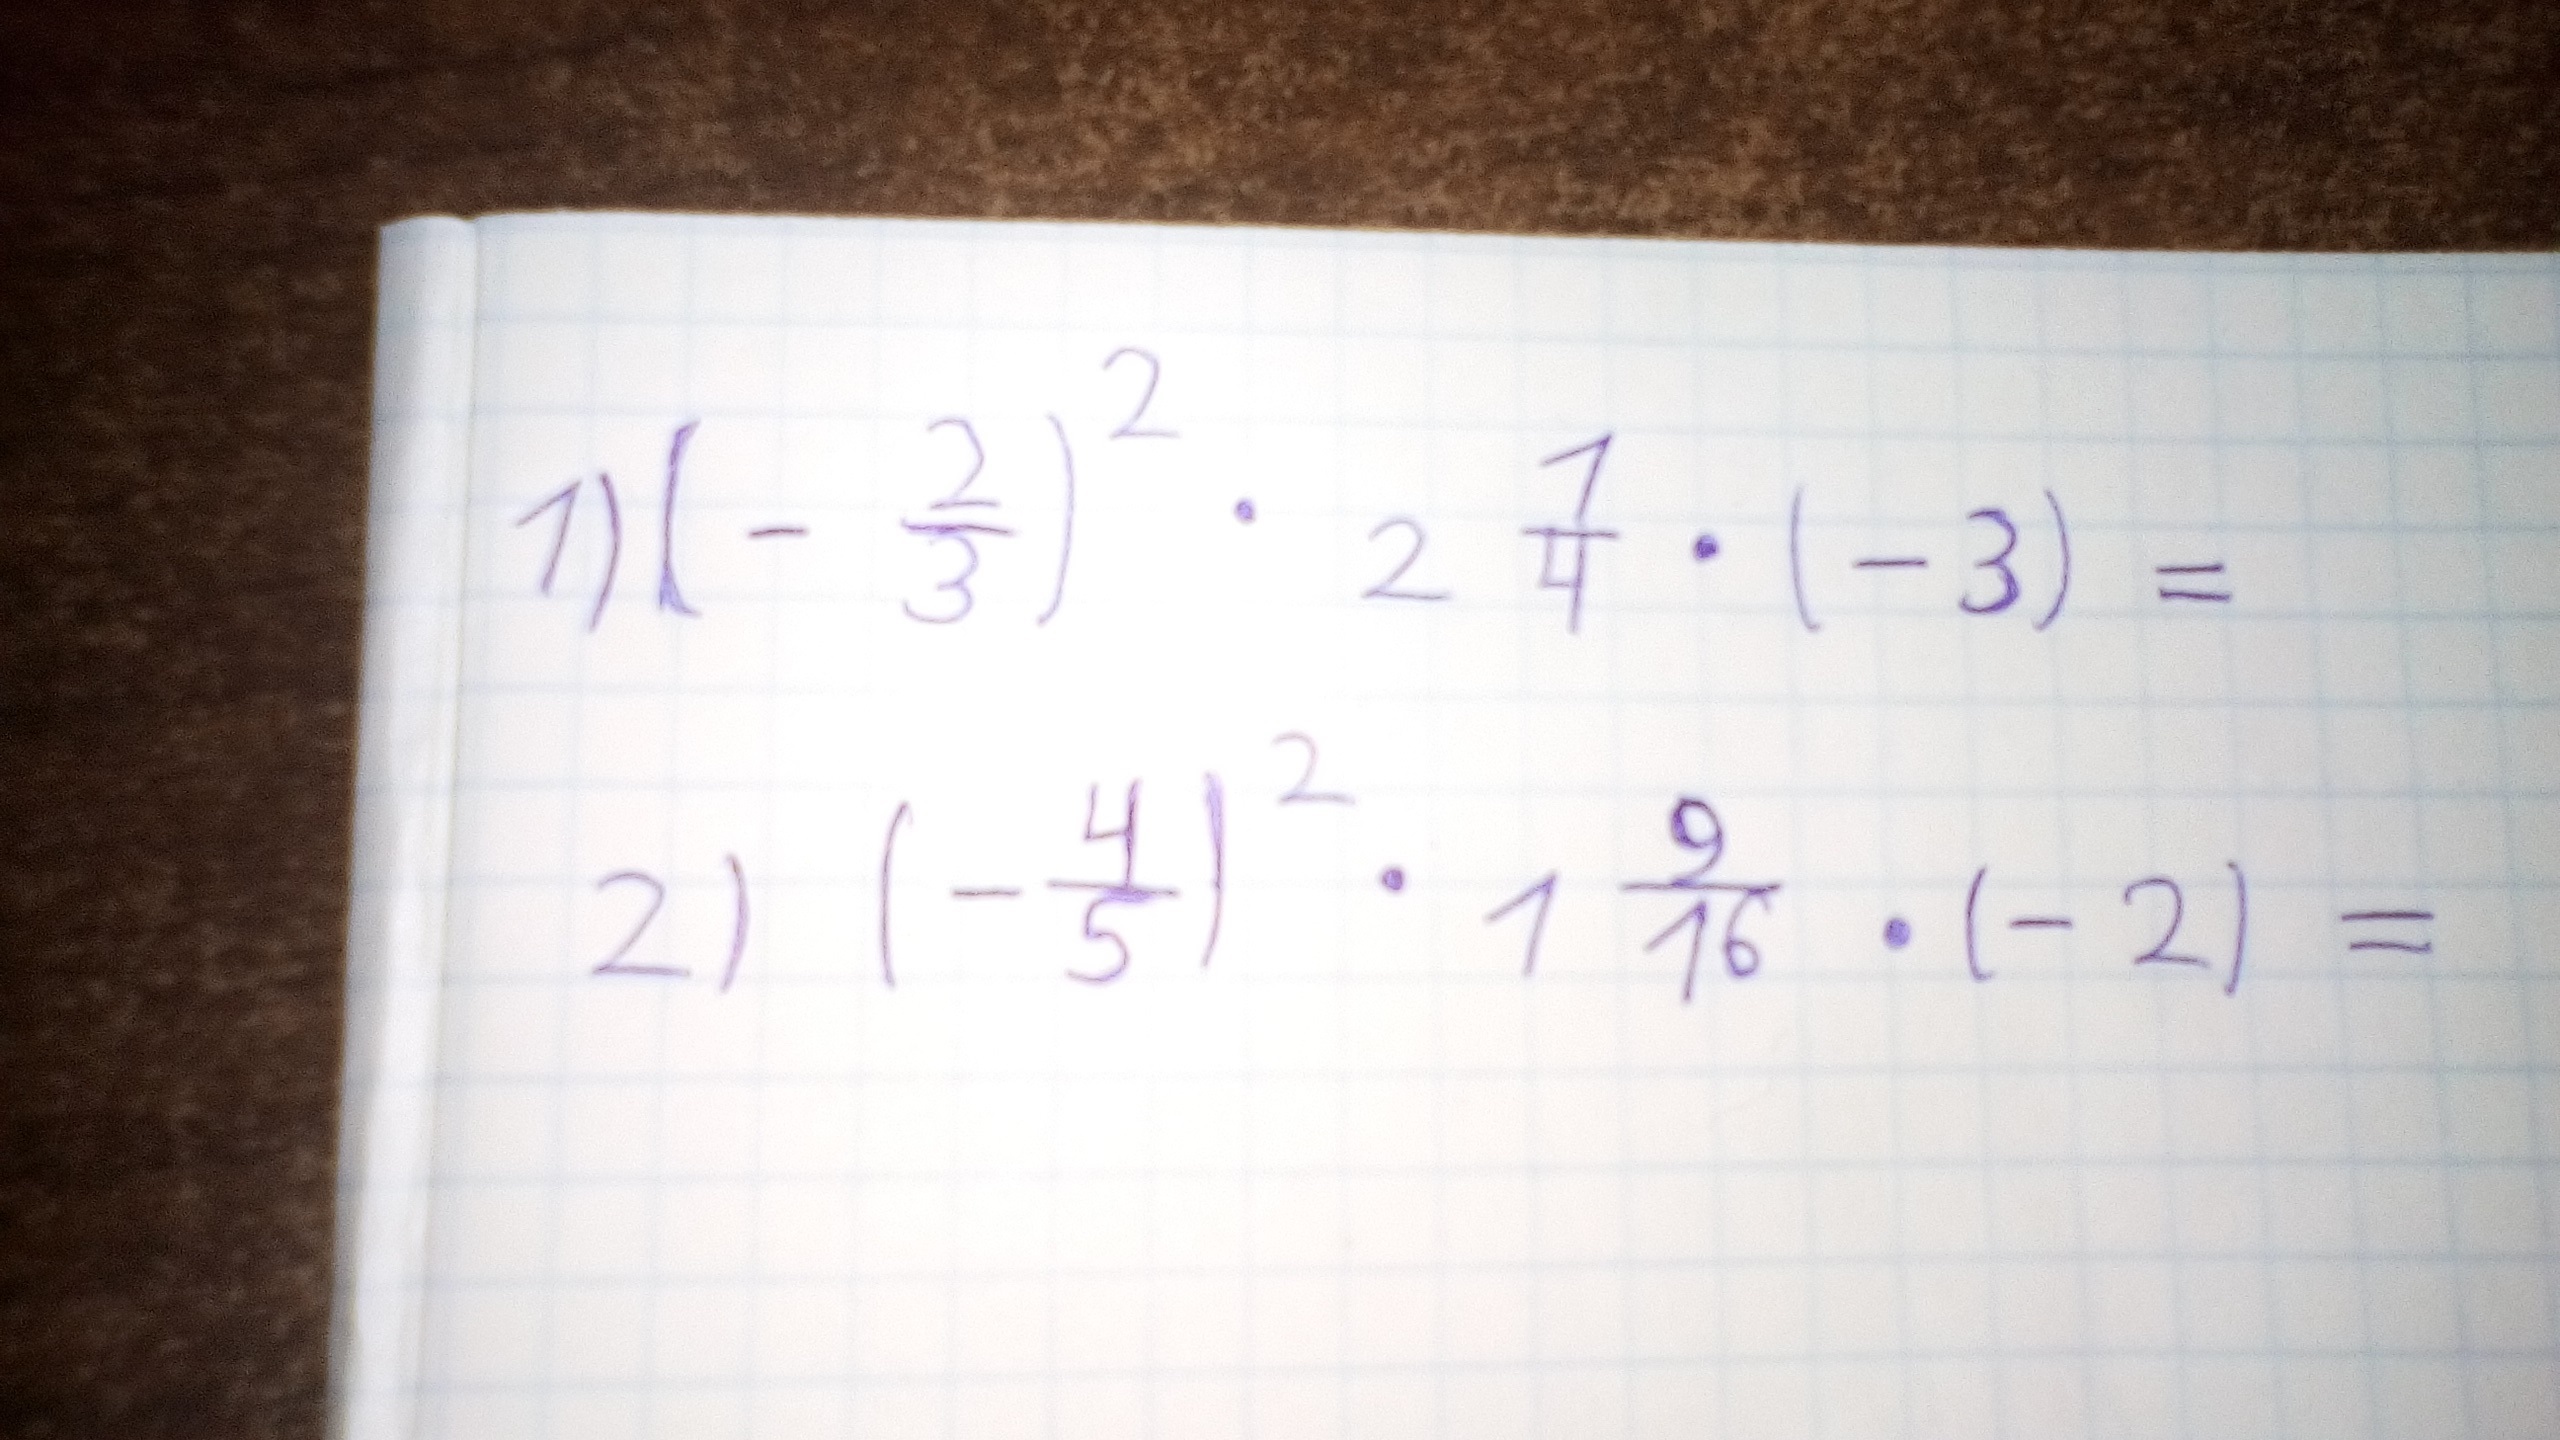 1) (- 2/3)² · 2 1/4 · (-3) =
2) (- 4/5)² · 1 9/16 · (-2) =